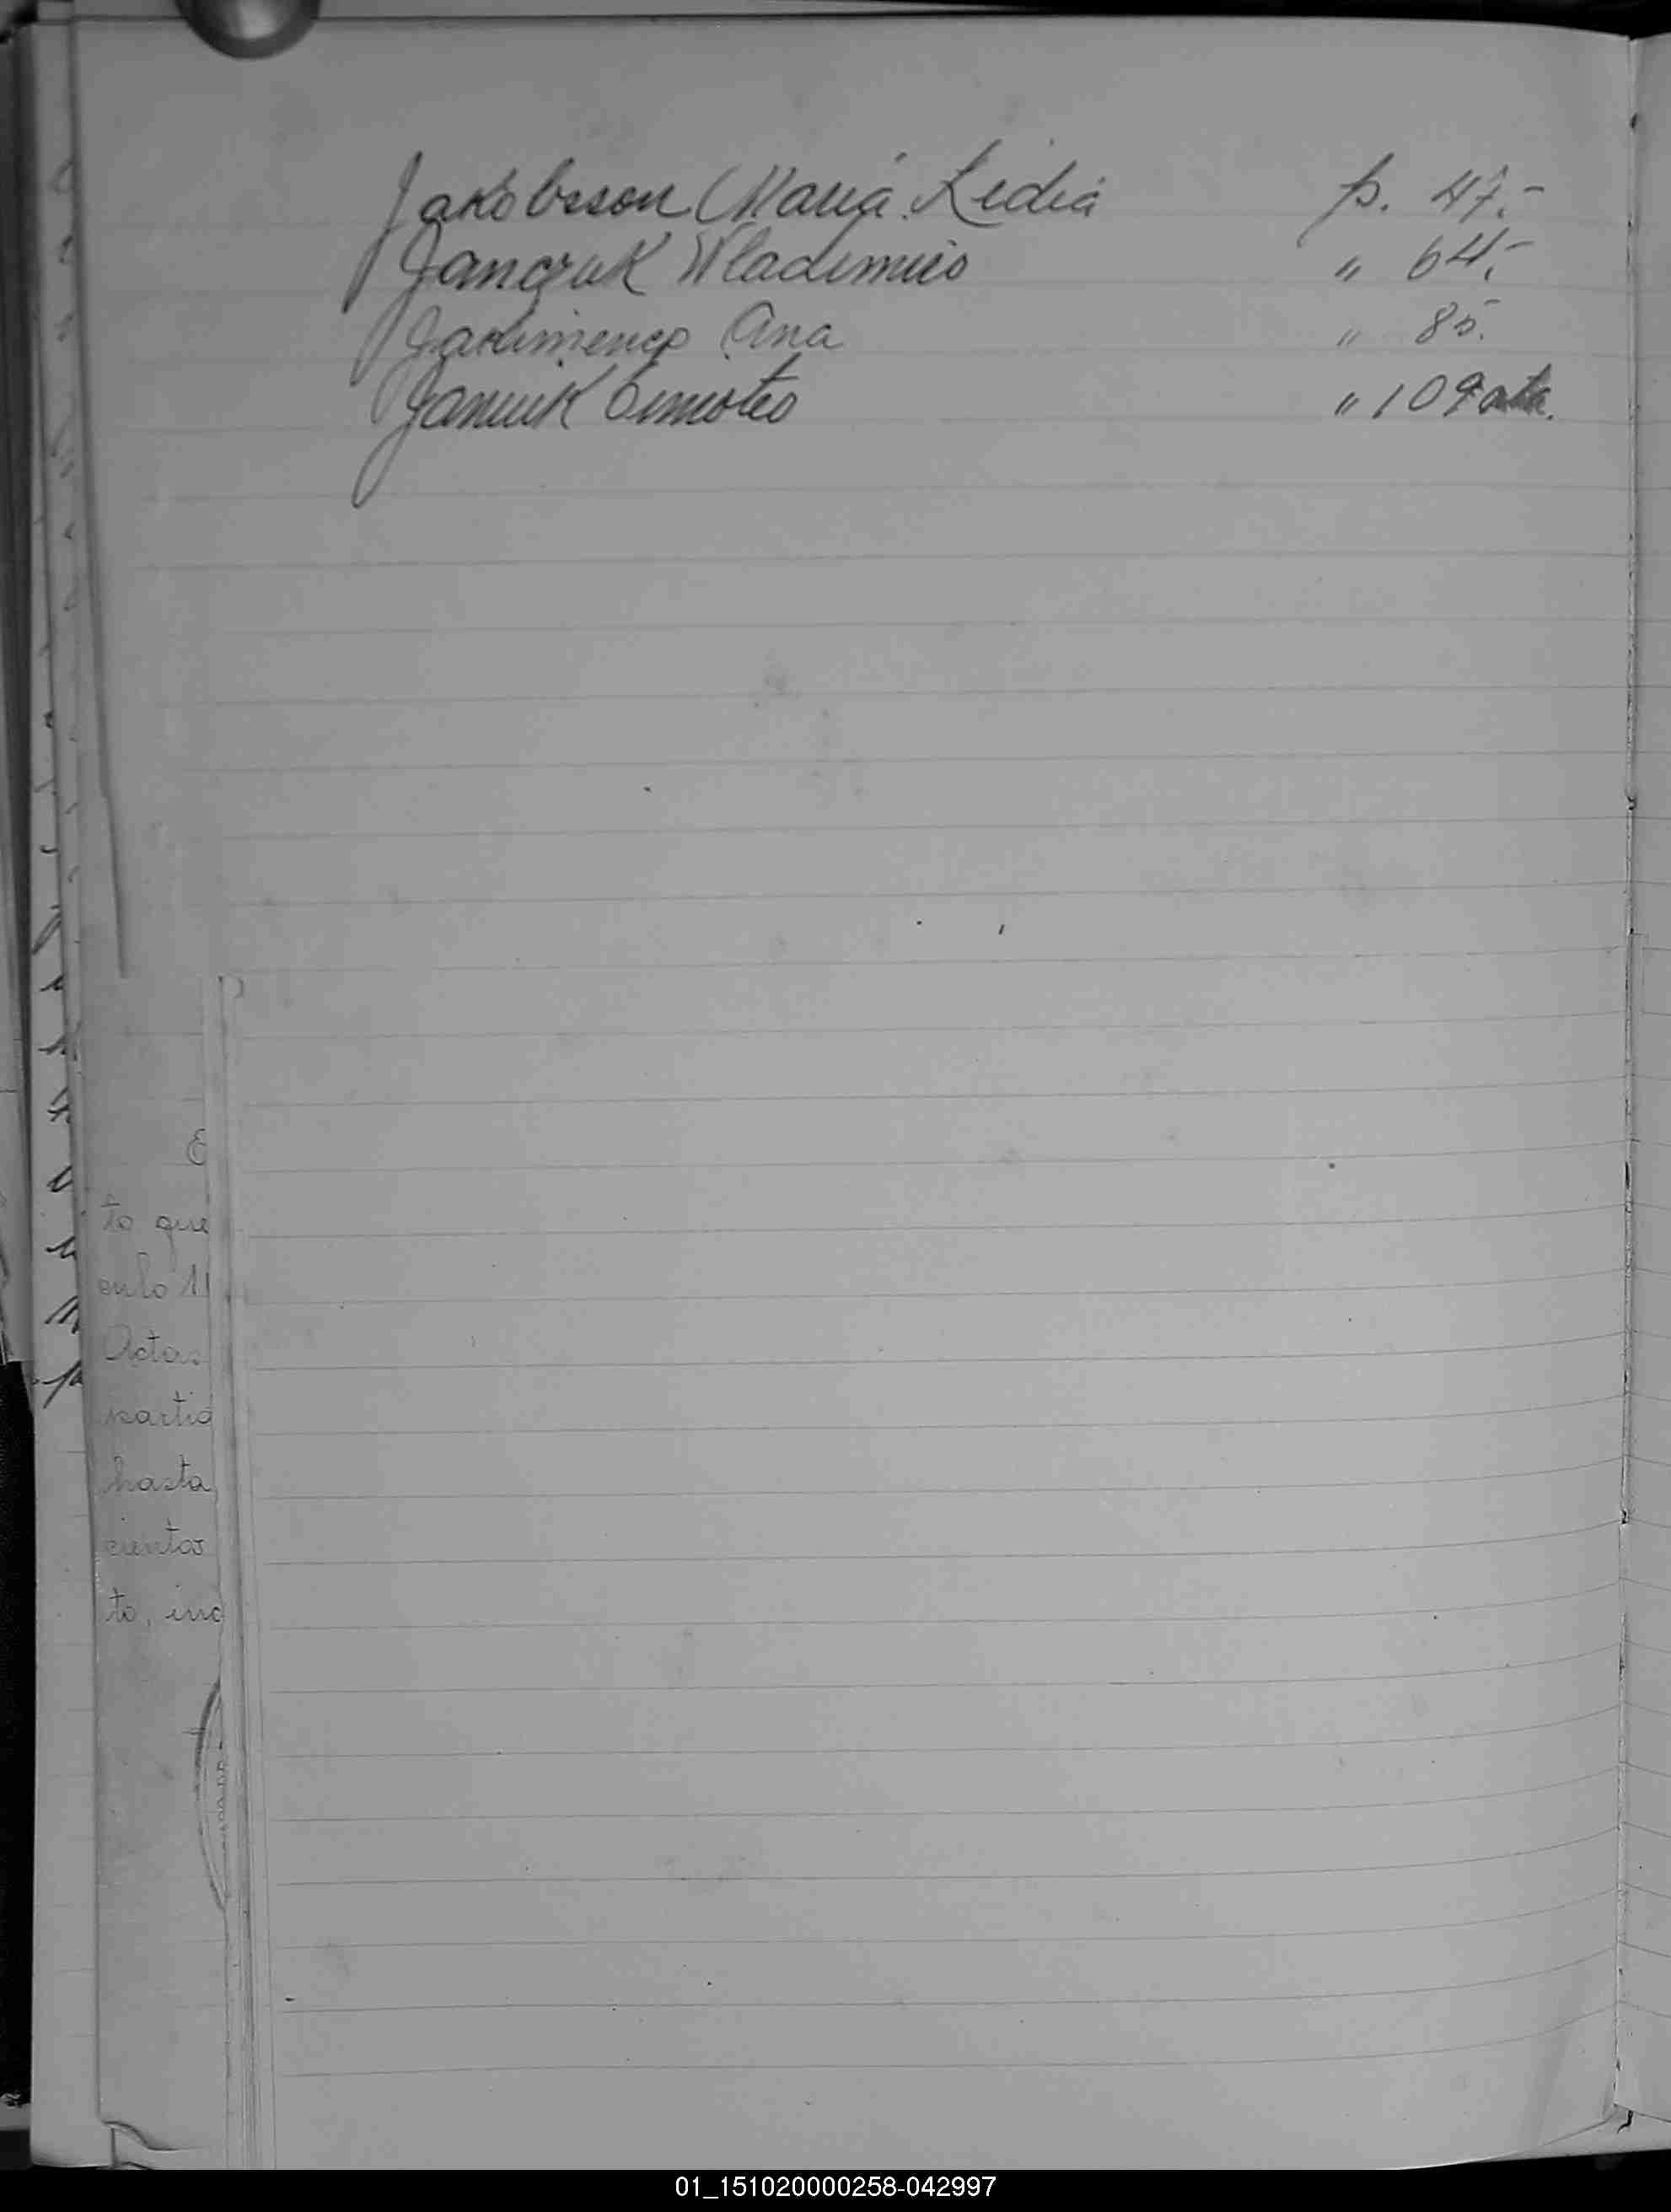 Jakobsson María Lidia p. 47.-
Janczuk Wladimiro " 64.-
Jakimenco Ana " 85.-
Januik Timoteo " 109 vta.
to que
Actas
partid
hasta
cientos
to, inc
01_151020000258-042997